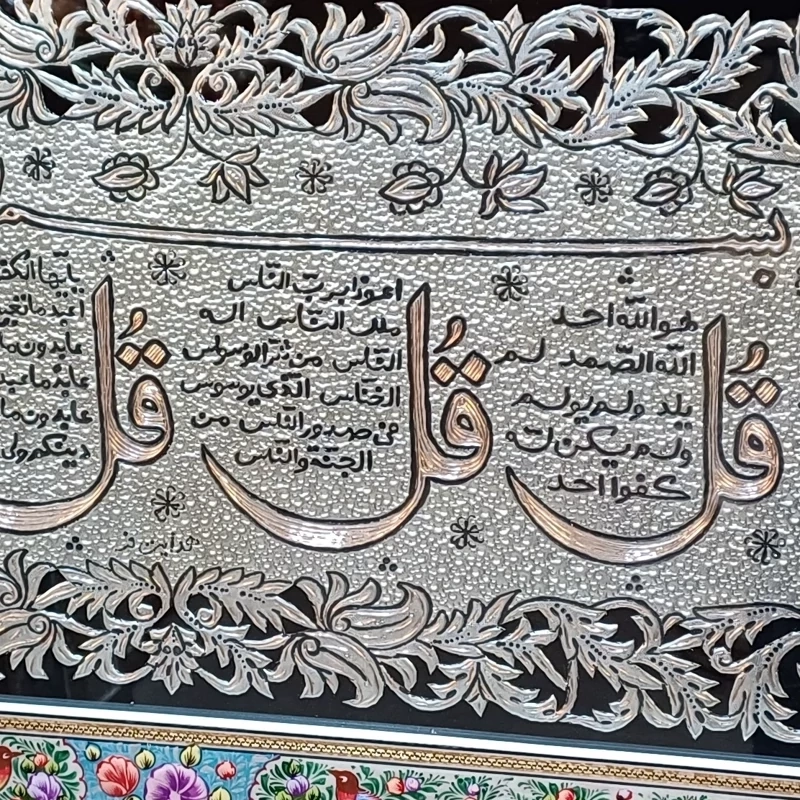 بسم
قل
هو الله احد
الله الصّمد لم
یلد ولم یولد
ولم یکن له
کفوا احد
قل
اعوذ برب النّاس
ملک النّاس اله
النّاس من شر الوسواس
الخنّاس الّذی یوسوس
فی صدور النّاس من
الجنّة والنّاس
قل
یا ایها الک
اعبد ما تعب
عابدون ما
عابد ما عبد
عابدون ما
دینکم ولی